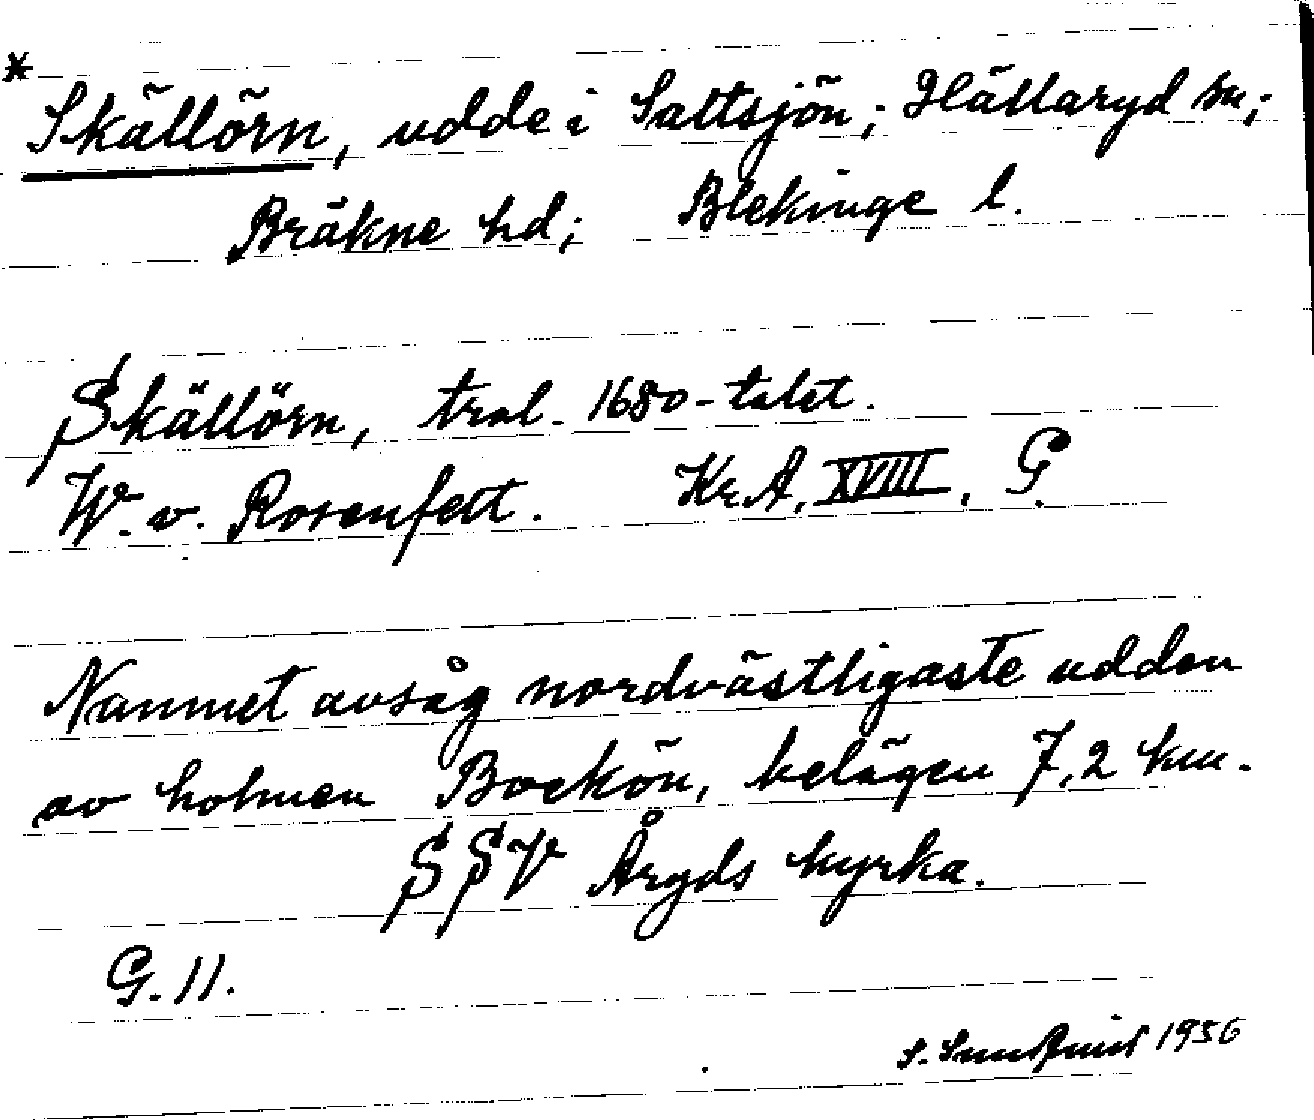 * Skällörn, udde i Saltsjön; Hällaryd sn;
Bräkne hd; Blekinge l.
Skällörn, trol. 1680-talet.
W. v. Rosenfelt. Kr.A. XVIII. G.
Namnet avsåg nordvästligaste udden
av holmen Bockön, belägen 7,2 km.
SSV Åryds kyrka.
G. 11.
S. 1956